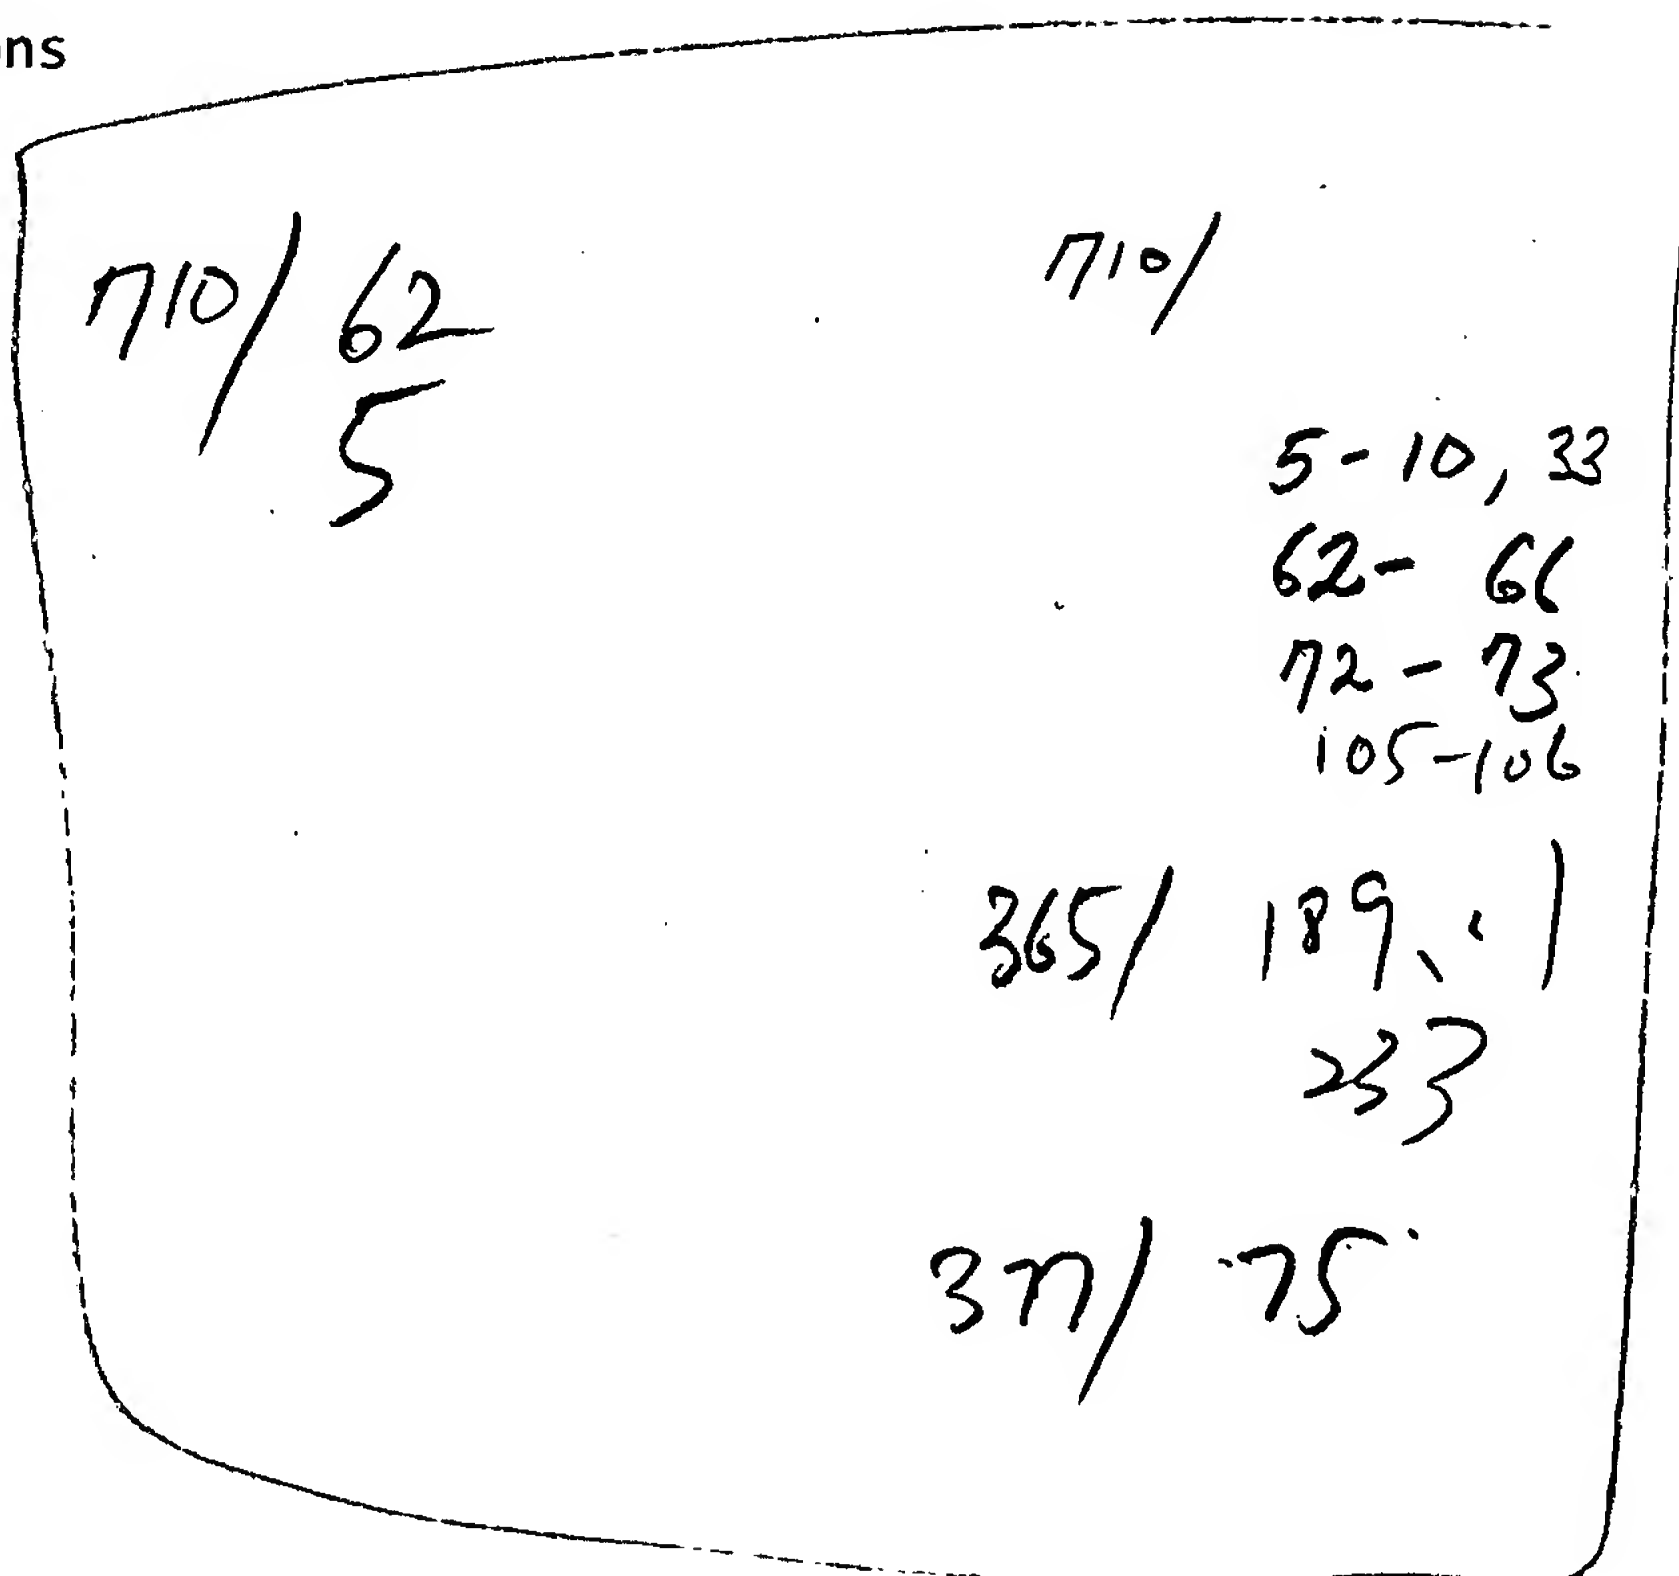 ns
710/ 62
5
710/
5-10, 33
62- 66
72-73
105-106
365/ 189, 1
233
377/ 75